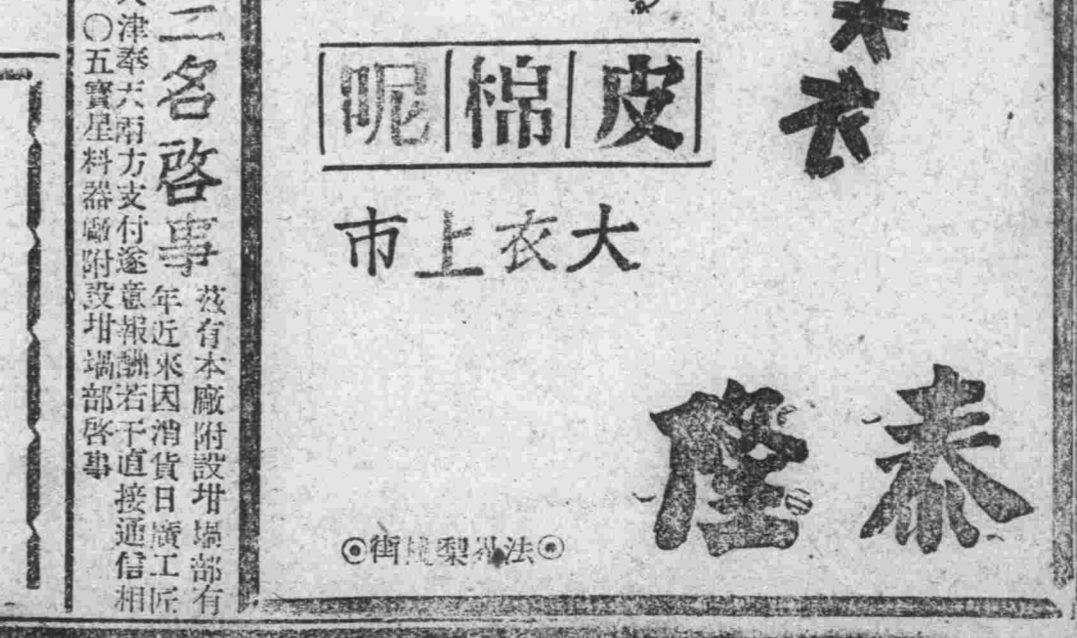 衣
皮棉呢
大衣上市
泰隆
◎法界梨棧街◎
二名啓事
茲有本廠附設坩堝部有
年近來因消貨日廣工匠
津奉天兩方支付遂意報酬若干直接通信相
〇五寶星料器廠附設坩堝部啓事